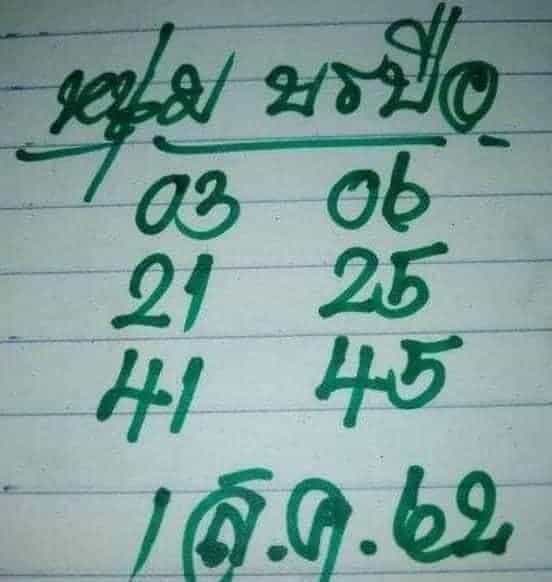 หนุ่ม บรบือ
03 06
21 25
41 45
1 ส.ค. 62